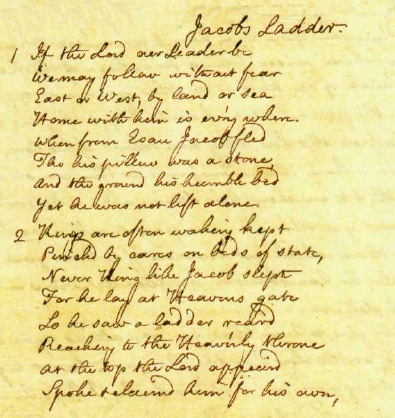 Jacobs Ladder.
1 If the Lord our Leader be
We may follow without fear
East or West, by land or sea
Home with him is ev'ry where.
When from Esau Jacob fled
Tho his pillow was a stone,
And the ground his humble bed
Yet he was not left alone.
2 Kings are often waking kept
by cares on beds of state,
Never King like Jacob slept
For he lay at Heavens gate
Lo he saw a ladder reard
Reaching to the Heav'nly throne
At the top the Lord appeard
Spoke & claimd him for his own,